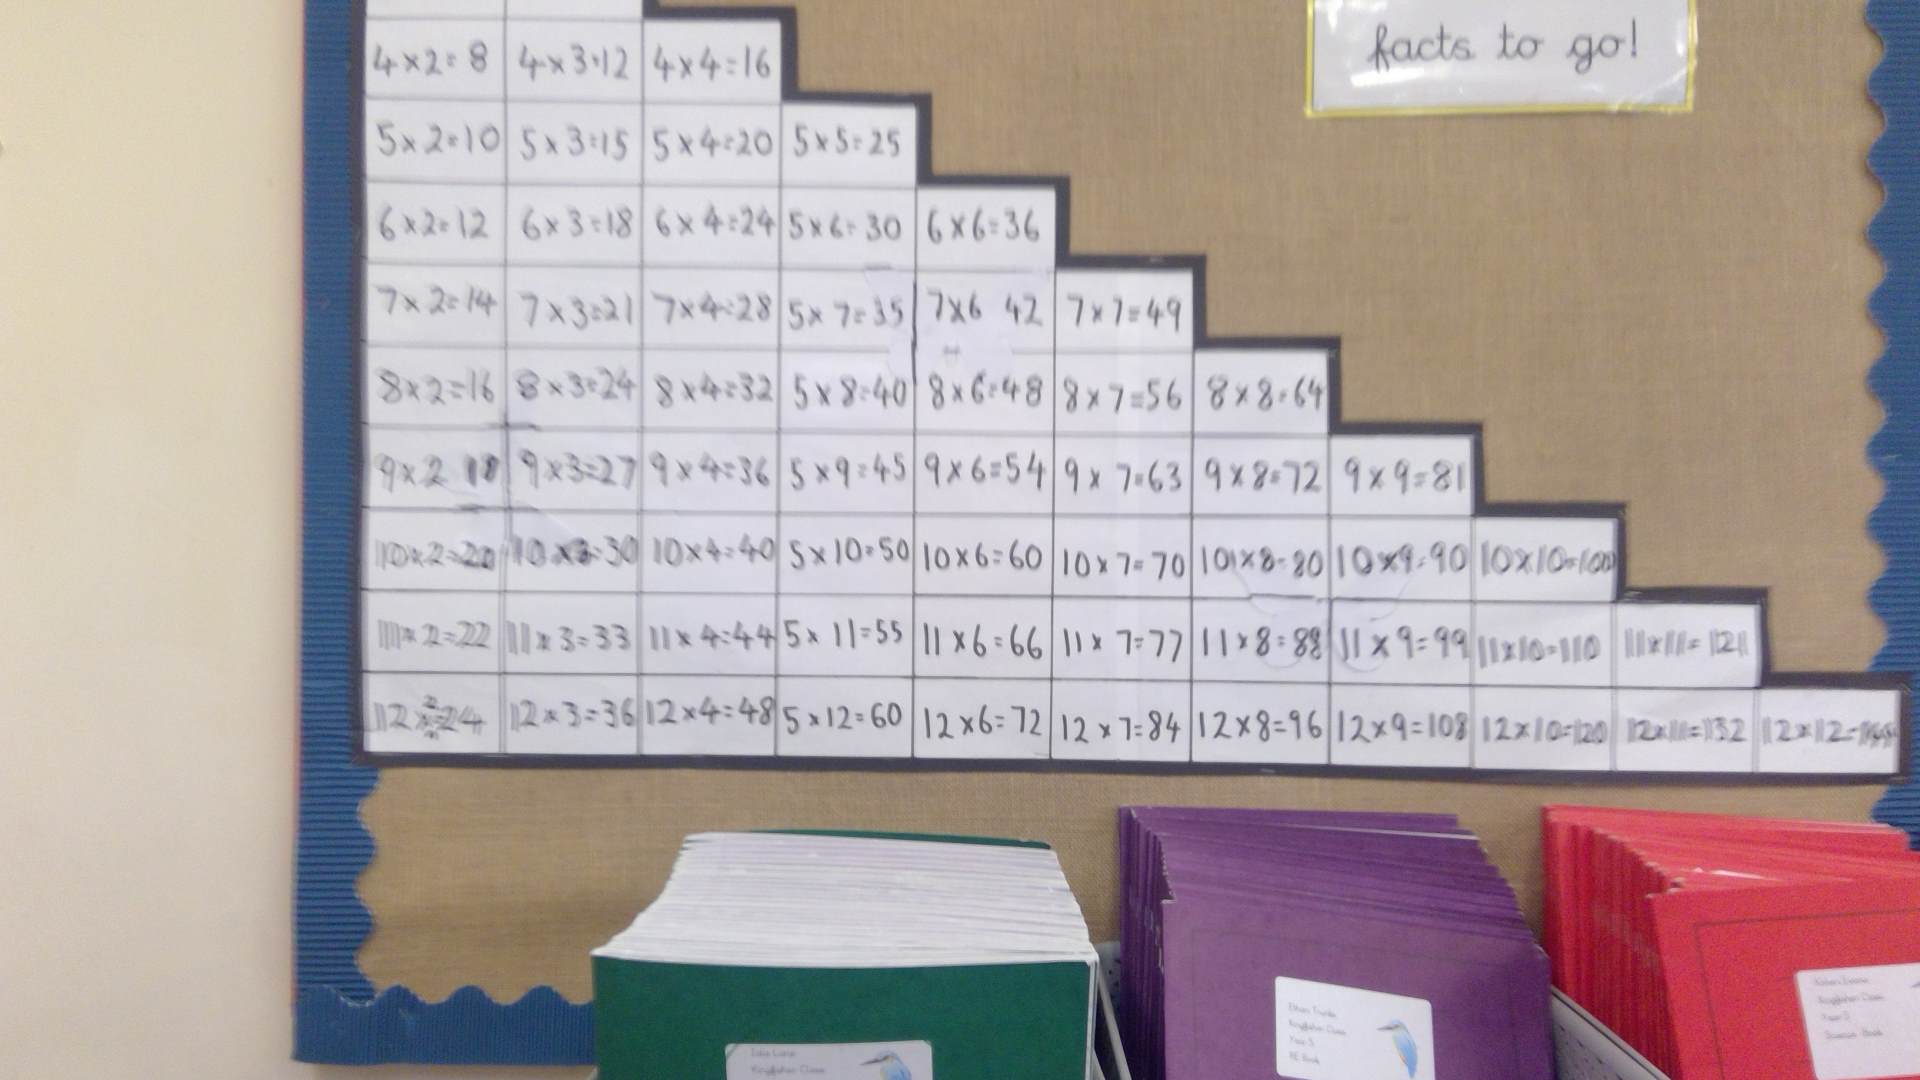 facts to go!
4×2=8 4×3=12 4×4=16
5×2=10 5×3=15 5×4=20 5×5=25
6×2=12 6×3=18 6×4=24 5×6=30 6×6=36
7×2=14 7×3=21 7×4=28 5×7=35 7×6 42 7×7=49
8×2=16 8×3=24 8×4=32 5×8=40 8×6=48 8×7=56 8×8=64
9×2 18 9×3=27 9×4=36 5×9=45 9×6=54 9×7=63 9×8=72 9×9=81
10×2=20 10×3=30 10×4=40 5×10=50 10×6=60 10×7=70 10×8=80 10×9=90 10×10=100
11×2=22 11×3=33 11×4=44 5×11=55 11×6=66 11×7=77 11×8=88 11×9=99 11×10=110 11×11=121
12×2=24 12×3=36 12×4=48 5×12=60 12×6=72 12×7=84 12×8=96 12×9=108 12×10=120 12×11=132 12×12=144
Kingfisher Class
Kingfisher Class
Year 5
RE Book
Kingfisher Class
Science Book